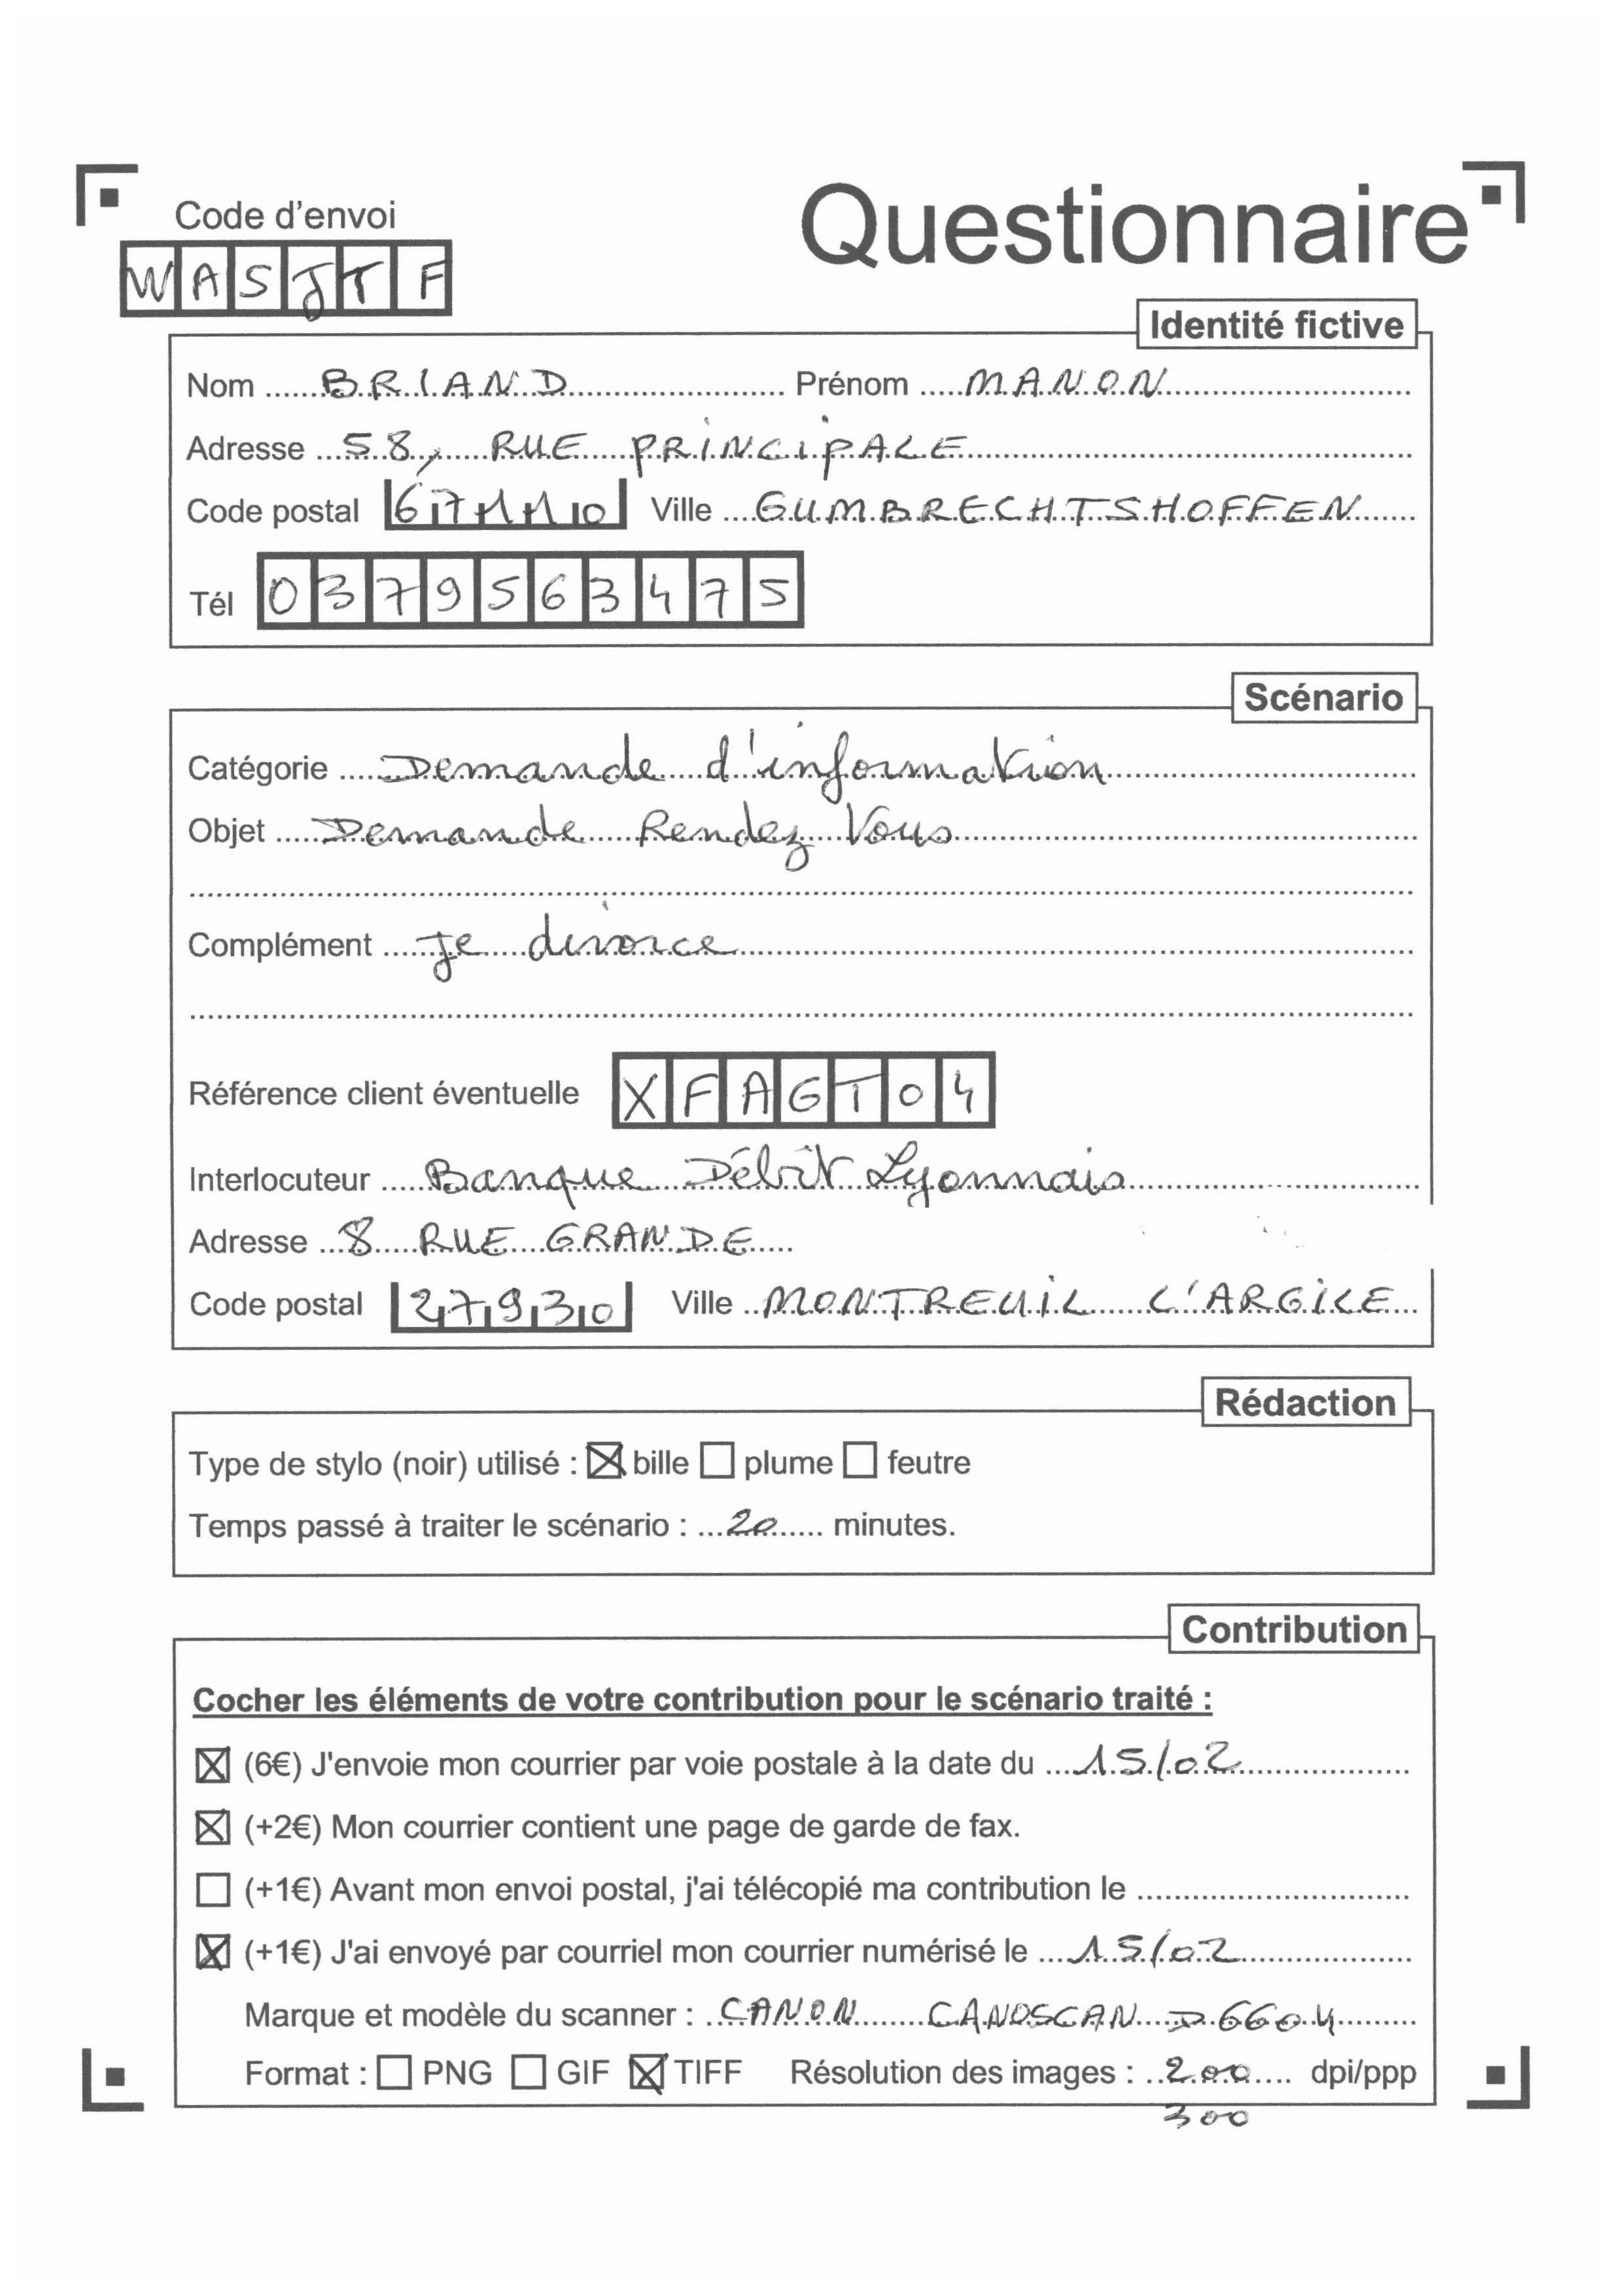 Code d'envoi
Questionnaire
WASJTF
Identité fictive
Nom ...... BRIAND ...... Prénom ..... MANON
Adresse ... 58, RUE PRINCIPALE
Code postal 67110 Ville .... GUMBRECHTSHOFFEN
Tél 0379563475
Scénario
Catégorie .... Demande d'information
Objet .... Demande Rendez Vous
Complément .... Je divorce
Référence client éventuelle XFAGT04
Interlocuteur .... Banque Débit Lyonnais
Adresse ... 8 RUE GRANDE
Code postal 27930 Ville .. MONTREUIL L'ARGILE
Rédaction
Type de stylo (noir) utilisé : ☒ bille ☐ plume ☐ feutre
Temps passé à traiter le scénario : ... 20 ...... minutes.
Contribution
Cocher les éléments de votre contribution pour le scénario traité :
☒ (6€) J'envoie mon courrier par voie postale à la date du .... 15/02
☒ (+2€) Mon courrier contient une page de garde de fax.
☐ (+1€) Avant mon envoi postal, j'ai télécopié ma contribution le ..............................
☒ (+1€) J'ai envoyé par courriel mon courrier numérisé le .... 15/02
Marque et modèle du scanner : .. CANON CANOSCAN D660U
Format : ☐ PNG ☐ GIF ☒ TIFF Résolution des images : .. 200 .... dpi/ppp
300